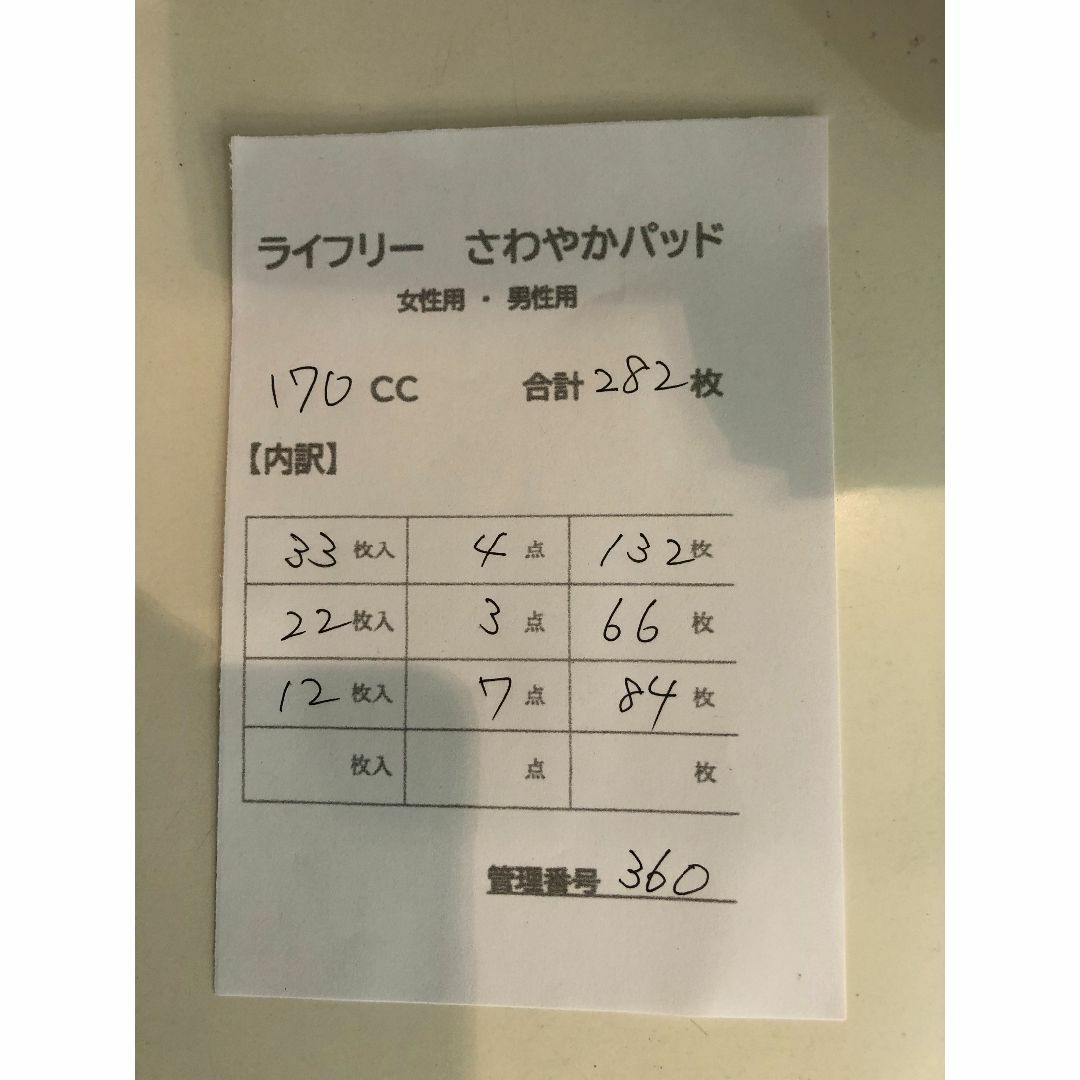 ライフリー　さわやかパッド
女性用・男性用
170 CC　合計 282 枚
【内訳】
33 枚入　4 点　132 枚
22 枚入　3 点　66 枚
12 枚入　7 点　84 枚
枚入　点　枚
管理番号 360